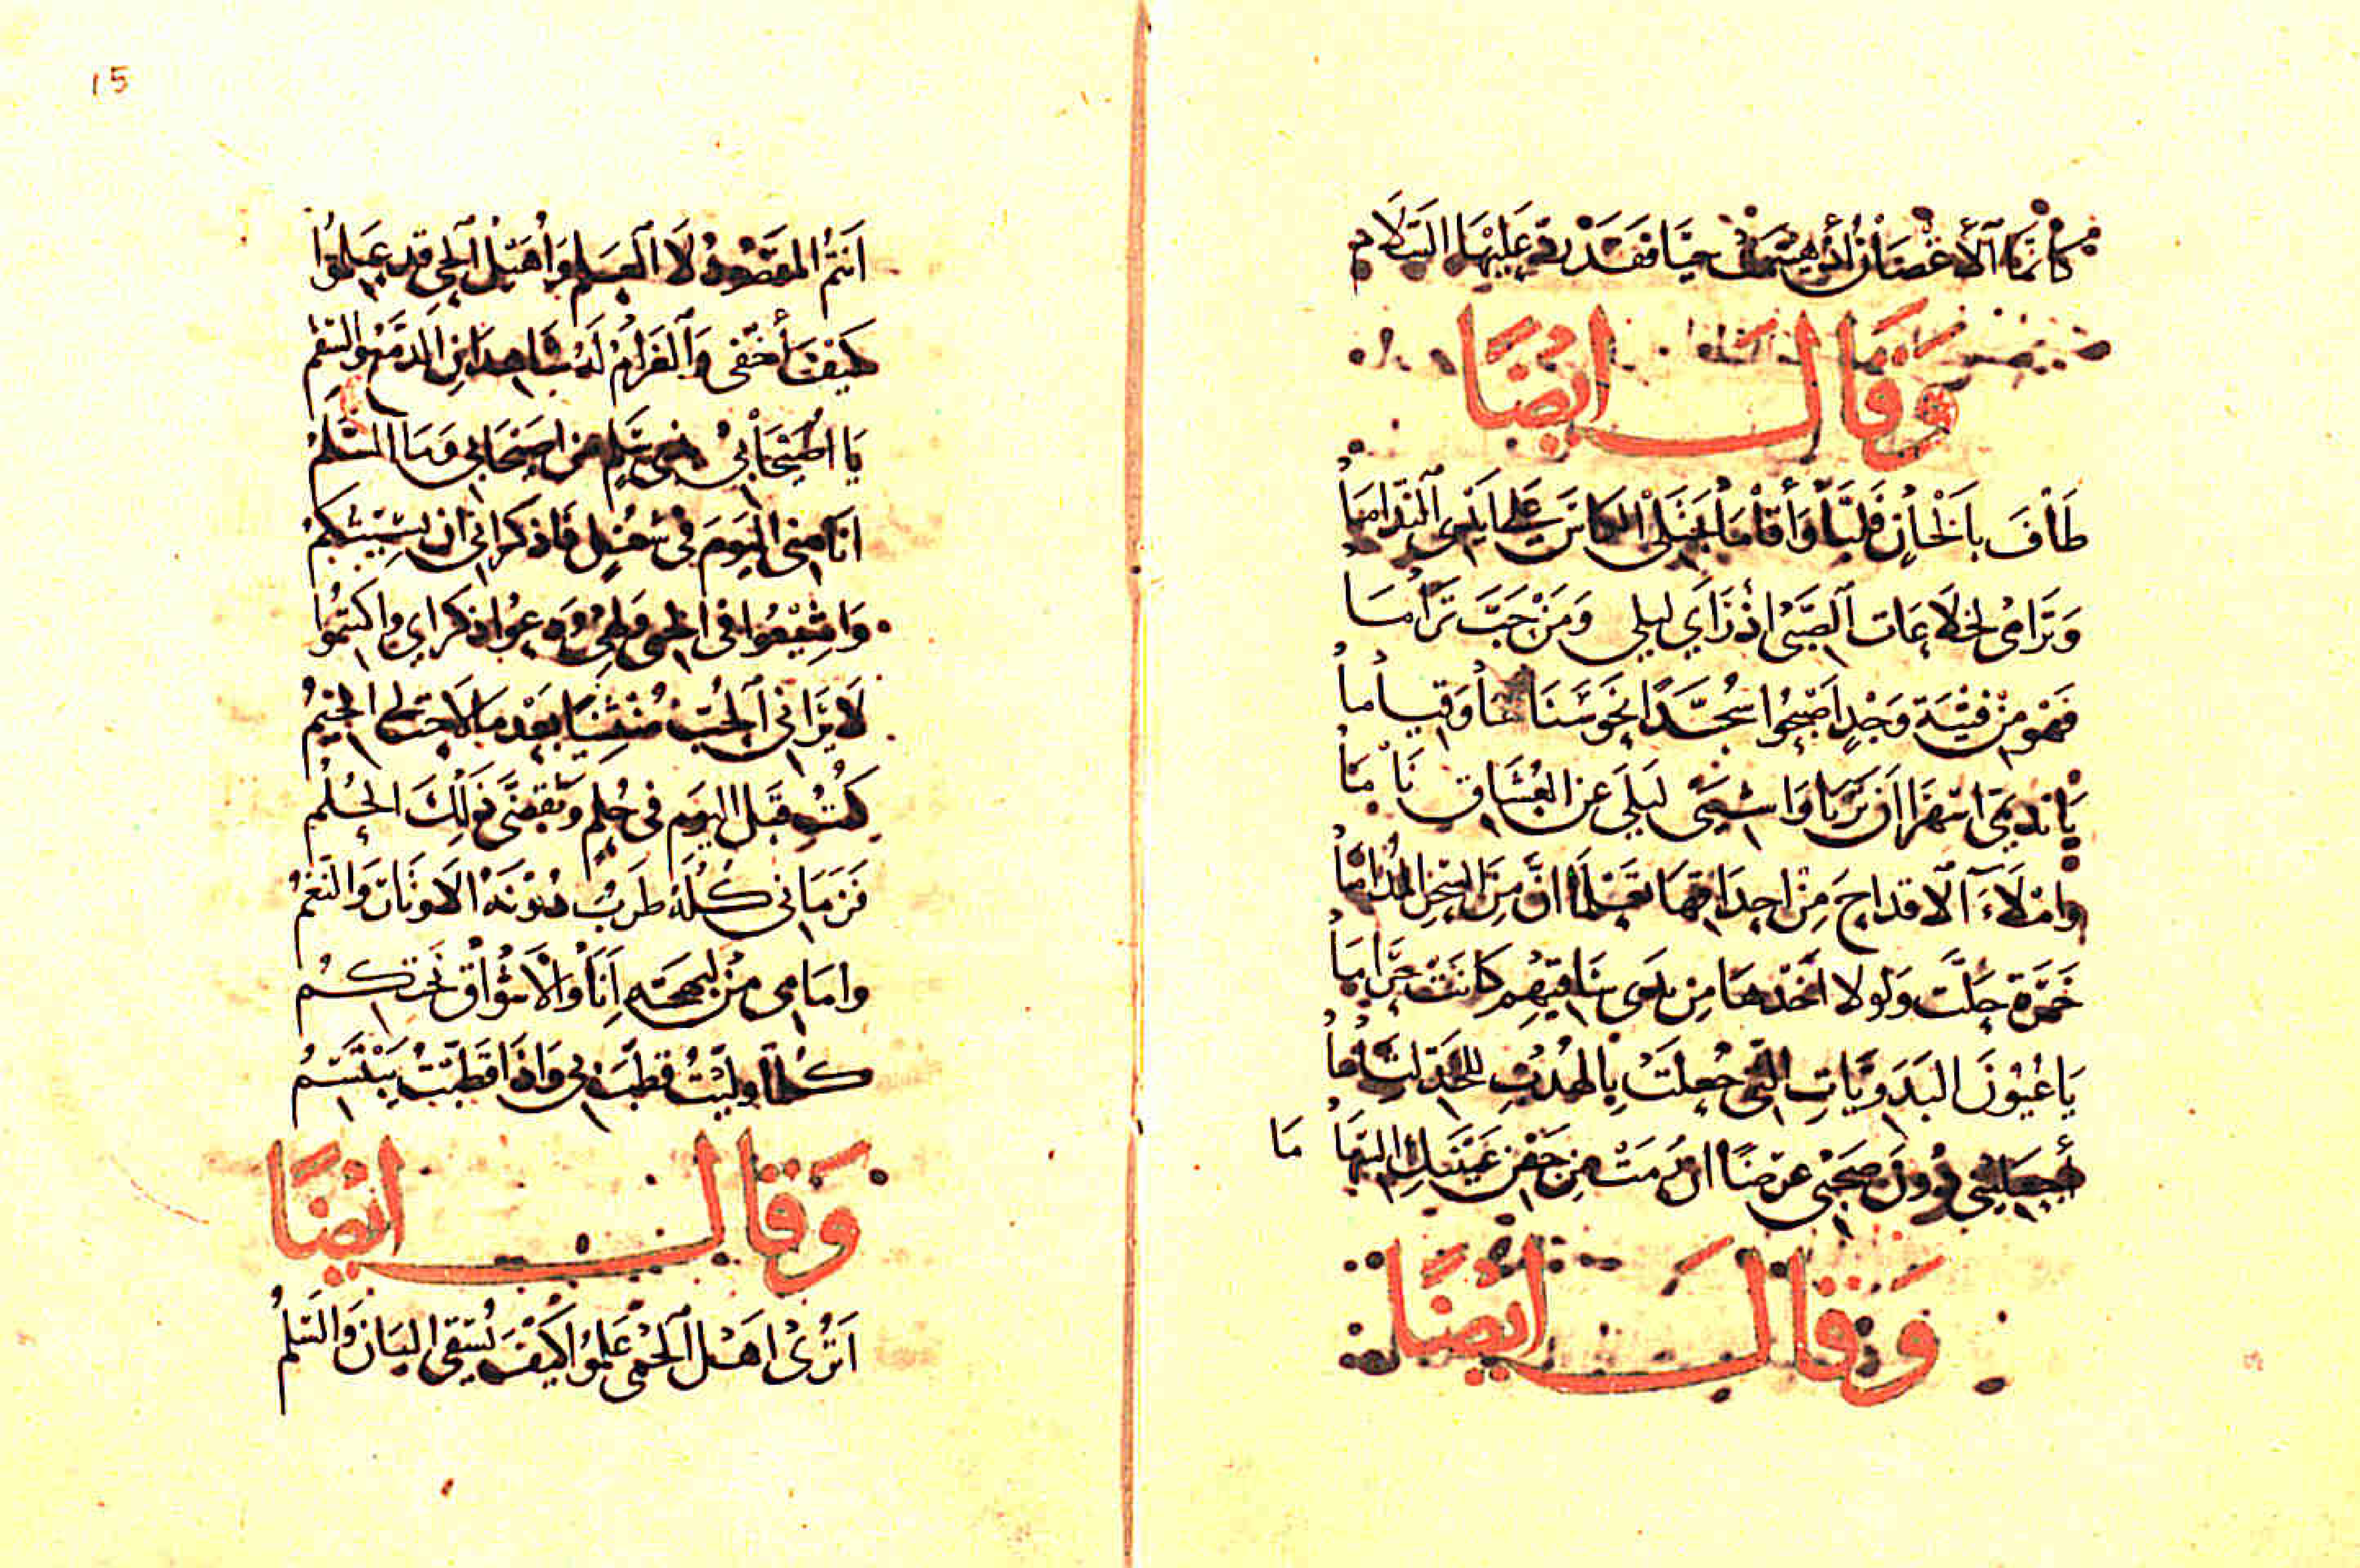 كَانَّمَا الْأَغْصَانُ أَذْ هَيْنَمَتْ حَيَّا فَقَدْ رَقَّ عَلَيْهَا السَّلَام
وَقَالَ ايْضًا
طَافَ بِالْحَانِ فَلَبَّا وَأَقَامَا يَجْتَلِى الكَاسَ عَلى أَيْدِى النَّدَامَا
وَتَرَامَى لِخَلَاعَات الصِّبَى اذْ رَاَى ليلى وَمَنْ حَبَّ تَرَامَا
فَهْوَ مِنْ فِتْيَةِ وَجْدٍ اَصْبَحُوا سُجَّدًا نَحْوَ سَنَاهَا وَقِيَامَا
يَا نَدِيمَىَّ انْهَرَا اَنْ تَرَيَا وَاشِيَىْ لَيلَى عَنِ العُشَّاقِ نَامَا
وامْلَاءَ الْاقداحَ مِنْ احداقِهَا نَعْلَمَا انَّ مِنَ السِّحْرِ المُدَامَا
خَمْرَة حَلَّت وَلولا اَخْذهَا مِن يَدَى سَاقِيهِم كَانَتْ حَرَامَا
يَا عُيُوْنَ البَدَوِيَّاتِ الَّتِى جُعِلَتْ بِالهُدْبِ لِلْخَدِّ لِثَامَا
أجعَلِيْنِى دُوْنَ صَحْبِى غَرَضًا اِنْ رَمَتْ مِن جَفْنِ عَيْنَيْكِ السِّهَامَا
وَقَالَ ايْضًا
15
اَنْتُم المَقْصُودُ لَا العَلَم وَاُهَيْلُ الْحَيِّ قَد عَلِمُوْا
كَيْفَ أَخْفَى وَالْغَرَامُ لَهُ شَاهِدَانِ الدَّمْعُ وَالسَّقَمُ
يَا اُصَيْحَابِيْ بِذِى سَلَمٍ مَن اصَيْحَابِى وَمَا السَّلَمُ
اَنَا مِنِى اليَوْمَ فِى شُغُلٍ فَاذكرانى اِن نَسِيْتُكُمُ
وَاشْفَعُوا فى الحَى فِىَّ وَدَعُوا ذكراي واكتُمُوا
لَا يَرَانِى الْحُبُّ مُنْثَنِيًا بَعْدَ مَا لَاحَتْ لِى الْخِيَمُ
كُنْتُ قَبْلَ اليَوْمِ فى حُلمٍ وَتَقَضَّى ذَلِكَ الحُلُمُ
فَزَمَانِى كُلّهُ طَرَبٌ دُوْنَهُ الاَوْتَارُ وَالنَّغَمُ
وَامَامِى مَنْ لِبَهْجَتِهِ اَنَا وَالْاَشْوَاقُ نَحْتَكِمُ
كُلَّمَا وَلَّيْتُ قَطَّبَ لِى وَاذَا قَطَّبْتُ يَبْتَسِمُ
وَقَالَ ايْضًا
اَتُرَىْ اَهْلُ الْحِمَى عَلِمُوا كَيْفَ يُسْقَى البَانُ وَالسَّلَمُ